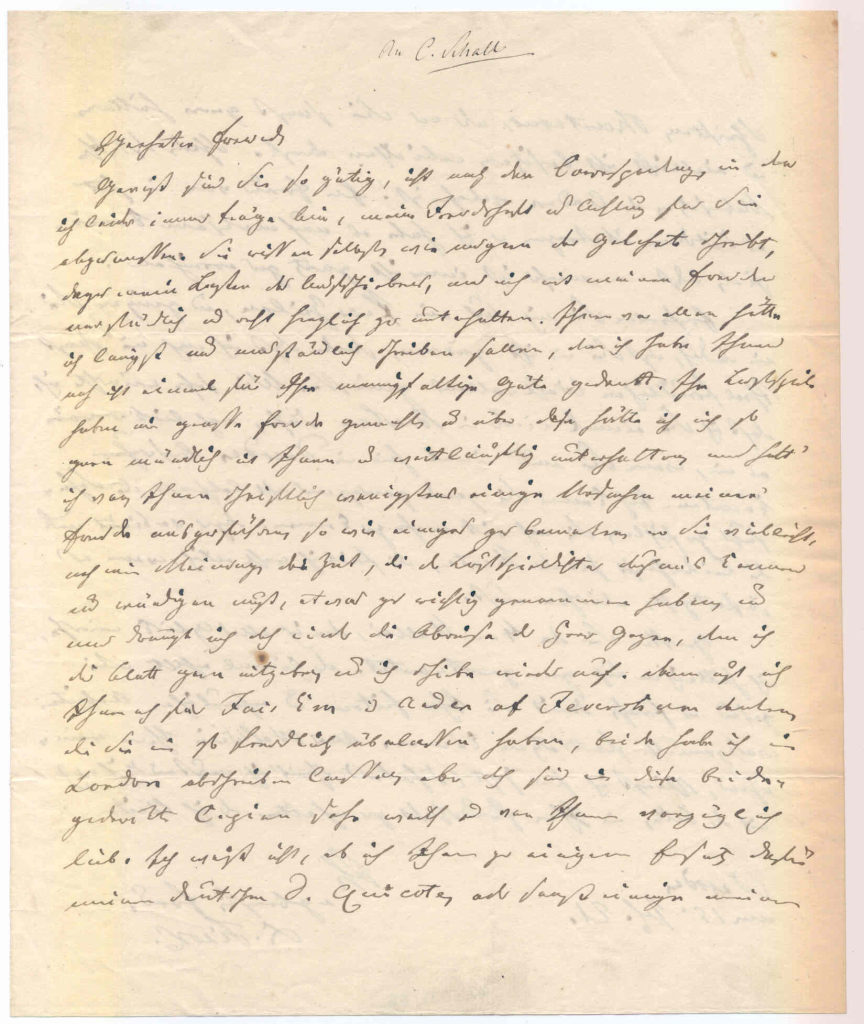 An C. Schall
Geehrter Freund
Gewiß sind Sie so gütig, nicht nach der Correspondenz, in der
ich leider immer träge bin, meine Freundschaft und Achtung für Sie
abzumessen. Sie wissen selbst wie ungern der Gelehrte schreibt,
mein und mit meinen Freunden
mündlich und recht herzlich zu unterhalten. Ihnen vor allen hätte
ich längst und umständlich schreiben sollen, denn ich habe Ihnen
noch nicht einmal für Ihre mannigfaltige Güte gedankt. Ihre Lustspiele
haben mir grosse Freude gemacht und über diese hätte ich mich so
gern mündlich mit Ihnen und weitläuftig unterhalten, und hätte
ich von Ihnen schriftlich wenigstens einige Ursachen meiner
Freude ausgeführt, so wie einiges zu bemerken, wo Sie vielleicht,
nach meiner Meinung die Zeit, die der Lustspieldichter durchaus kennen
und würdigen muß, etwas zu wichtig genommen haben, und
nun drängt mich doch wieder die Abreise des Herrn , dem ich
das Blatt gern mitgeben und ich schiebe wieder auf. Eben muß ich
Ihnen auch für Fair Em und Arden of Feversham danken,
die Sie mir so freundlich überlassen haben, beide habe ich in
London abschreiben lassen, aber doch sind mir diese beiden
gedruckten Copien sehr werth und von Ihnen vorzüglich
lieb. Ich weiß nicht, ob ich Ihnen zu einigem Ersatz dafür
meinen deutschen D. Quixote, oder sonst einige meiner